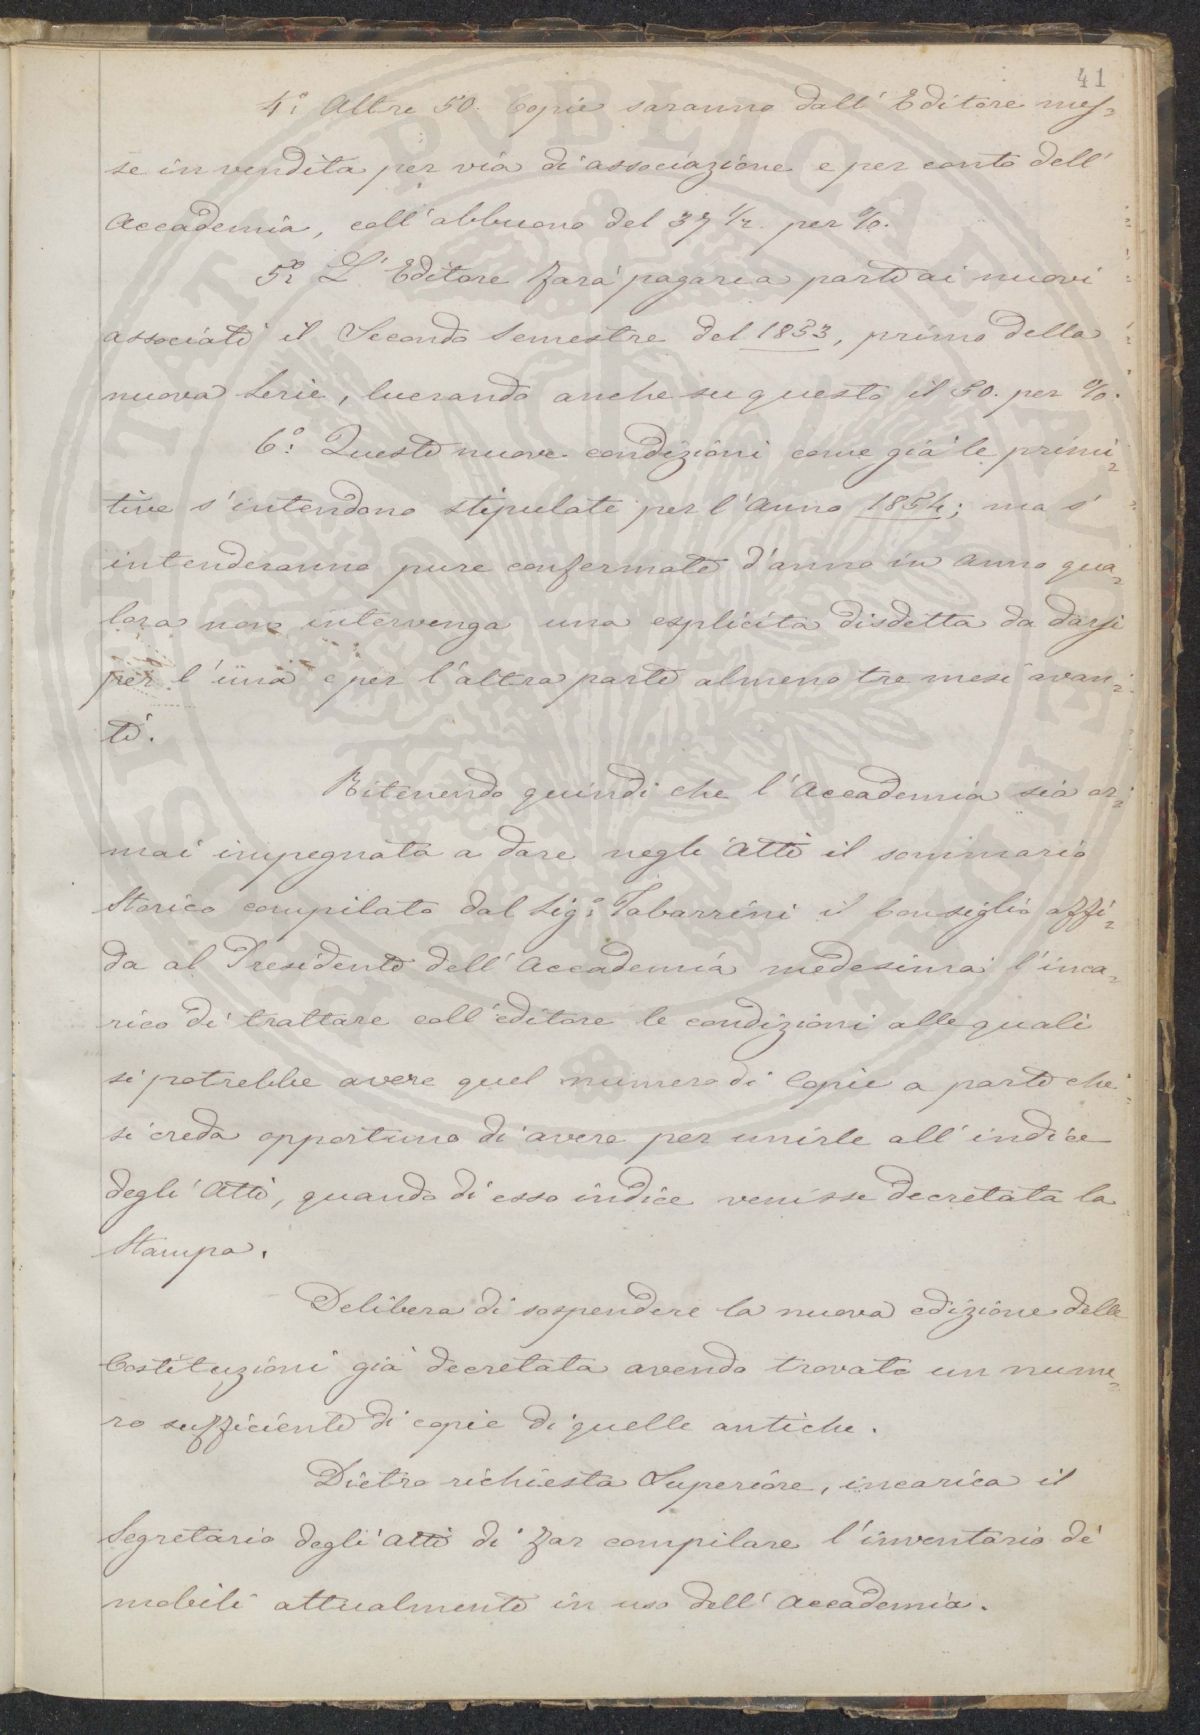 41
4.° Altre 50. Copie saranno dall'Editore mes=
se in vendita per via di associazione e per conto dell'
Accademia, coll'abbuono del 37 1/2. per %.
5.° L'Editore farà pagare a parte ai nuovi
associati il Secondo Semestre del 1853, primo della
nuova Serie, lucrando anche su questo il 50. per %.
6.° Queste nuove condizioni come già le primi=
tive s'intendono stipulate per l'Anno 1854; ma s'
intenderanno pure confermate d'anno in Anno qua=
lora non intervenga una esplicita disdetta da darsi
per l'una e per l'altra parte almeno tre mesi avan=
ti.
Ritenendo quindi che l'Accademia sia or=
mai impegnata a dare negli Atti il sommario
Storico compilato dal Sig.° Tabarrini il Consiglio affi=
da al Presidente dell'Accademia medesima l'inca=
rico di trattare coll'editore le condizioni alle quali
si potrebbe avere quel numero di Copie a parte che
si creda opportuno di avere per unirle all'indice
degli Atti, quando di esso indice venisse decretata la
Stampa.
Delibera di sospendere la nuova edizione delle
Costituzioni già decretata avendo trovato un nume=
ro sufficiente di copie di quelle antiche.
Dietro richiesta Superiore, incarica il
Segretario degli Atti di far compilare l'inventario de'
mobili attualmente in uso dell'Accademia.